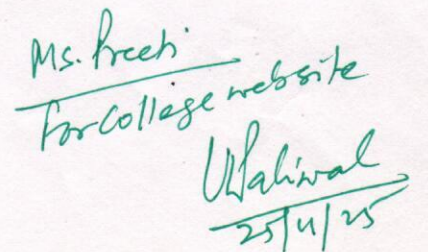 Ms. Preeti
For College website
UPaliwal
25/11/25